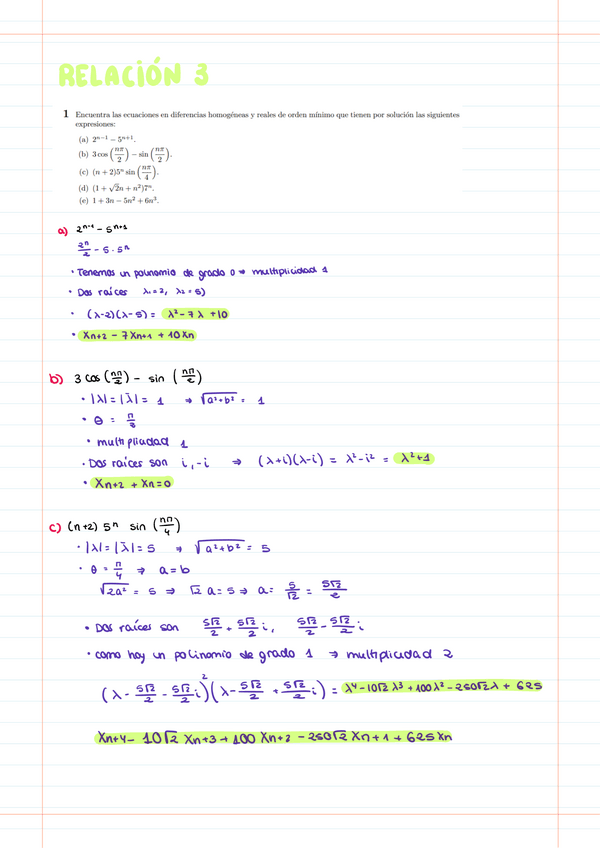 RELACIÓN 3
1 Encuentra las ecuaciones en diferencias homogéneas y reales de orden mínimo que tienen por solución las siguientes
expresiones:
(a) 2ⁿ⁻¹ − 5ⁿ⁺¹.
(b) 3 cos (nπ/2) − sin (nπ/2).
(c) (n + 2)5ⁿ sin (nπ/4).
(d) (1 + √2n + n²)7ⁿ.
(e) 1 + 3n − 5n² + 6n³.
a) 2ⁿ⁻¹ − 5ⁿ⁺¹
2ⁿ/2 − 5 · 5ⁿ
· Tenemos un polinomio de grado 0 ⇒ multiplicidad 1
· Dos raíces λ₁ = 2, λ₂ = 5)
· (λ-2)(λ-5) = λ² − 7λ + 10
· Xn+2 − 7Xn+1 + 10Xn
b) 3 cos (nπ/2) − sin (nπ/2)
· |λ| = |λ̄| = 1 ⇒ √a²+b² = 1
· θ = π/2
· multiplicidad 1
· Dos raíces son i, -i ⇒ (λ+i)(λ-i) = λ² − i² = λ²+1
· Xn+2 + Xn = 0
c) (n+2) 5ⁿ sin (nπ/4)
· |λ| = |λ̄| = 5 ⇒ √a²+b² = 5
· θ = π/4 ⇒ a = b
√2a² = 5 ⇒ √2 a = 5 ⇒ a = 5/√2 = 5√2/2
· Dos raíces son 5√2/2 + 5√2/2 i, 5√2/2 − 5√2/2 i
· como hay un polinomio de grado 1 ⇒ multiplicidad 2
(λ − 5√2/2 − 5√2/2 i)² (λ − 5√2/2 + 5√2/2 i) = λ⁴ − 10√2 λ³ + 100λ² − 250√2 λ + 625
Xn+4 − 10√2 Xn+3 + 100 Xn+2 − 250√2 Xn+1 + 625Xn